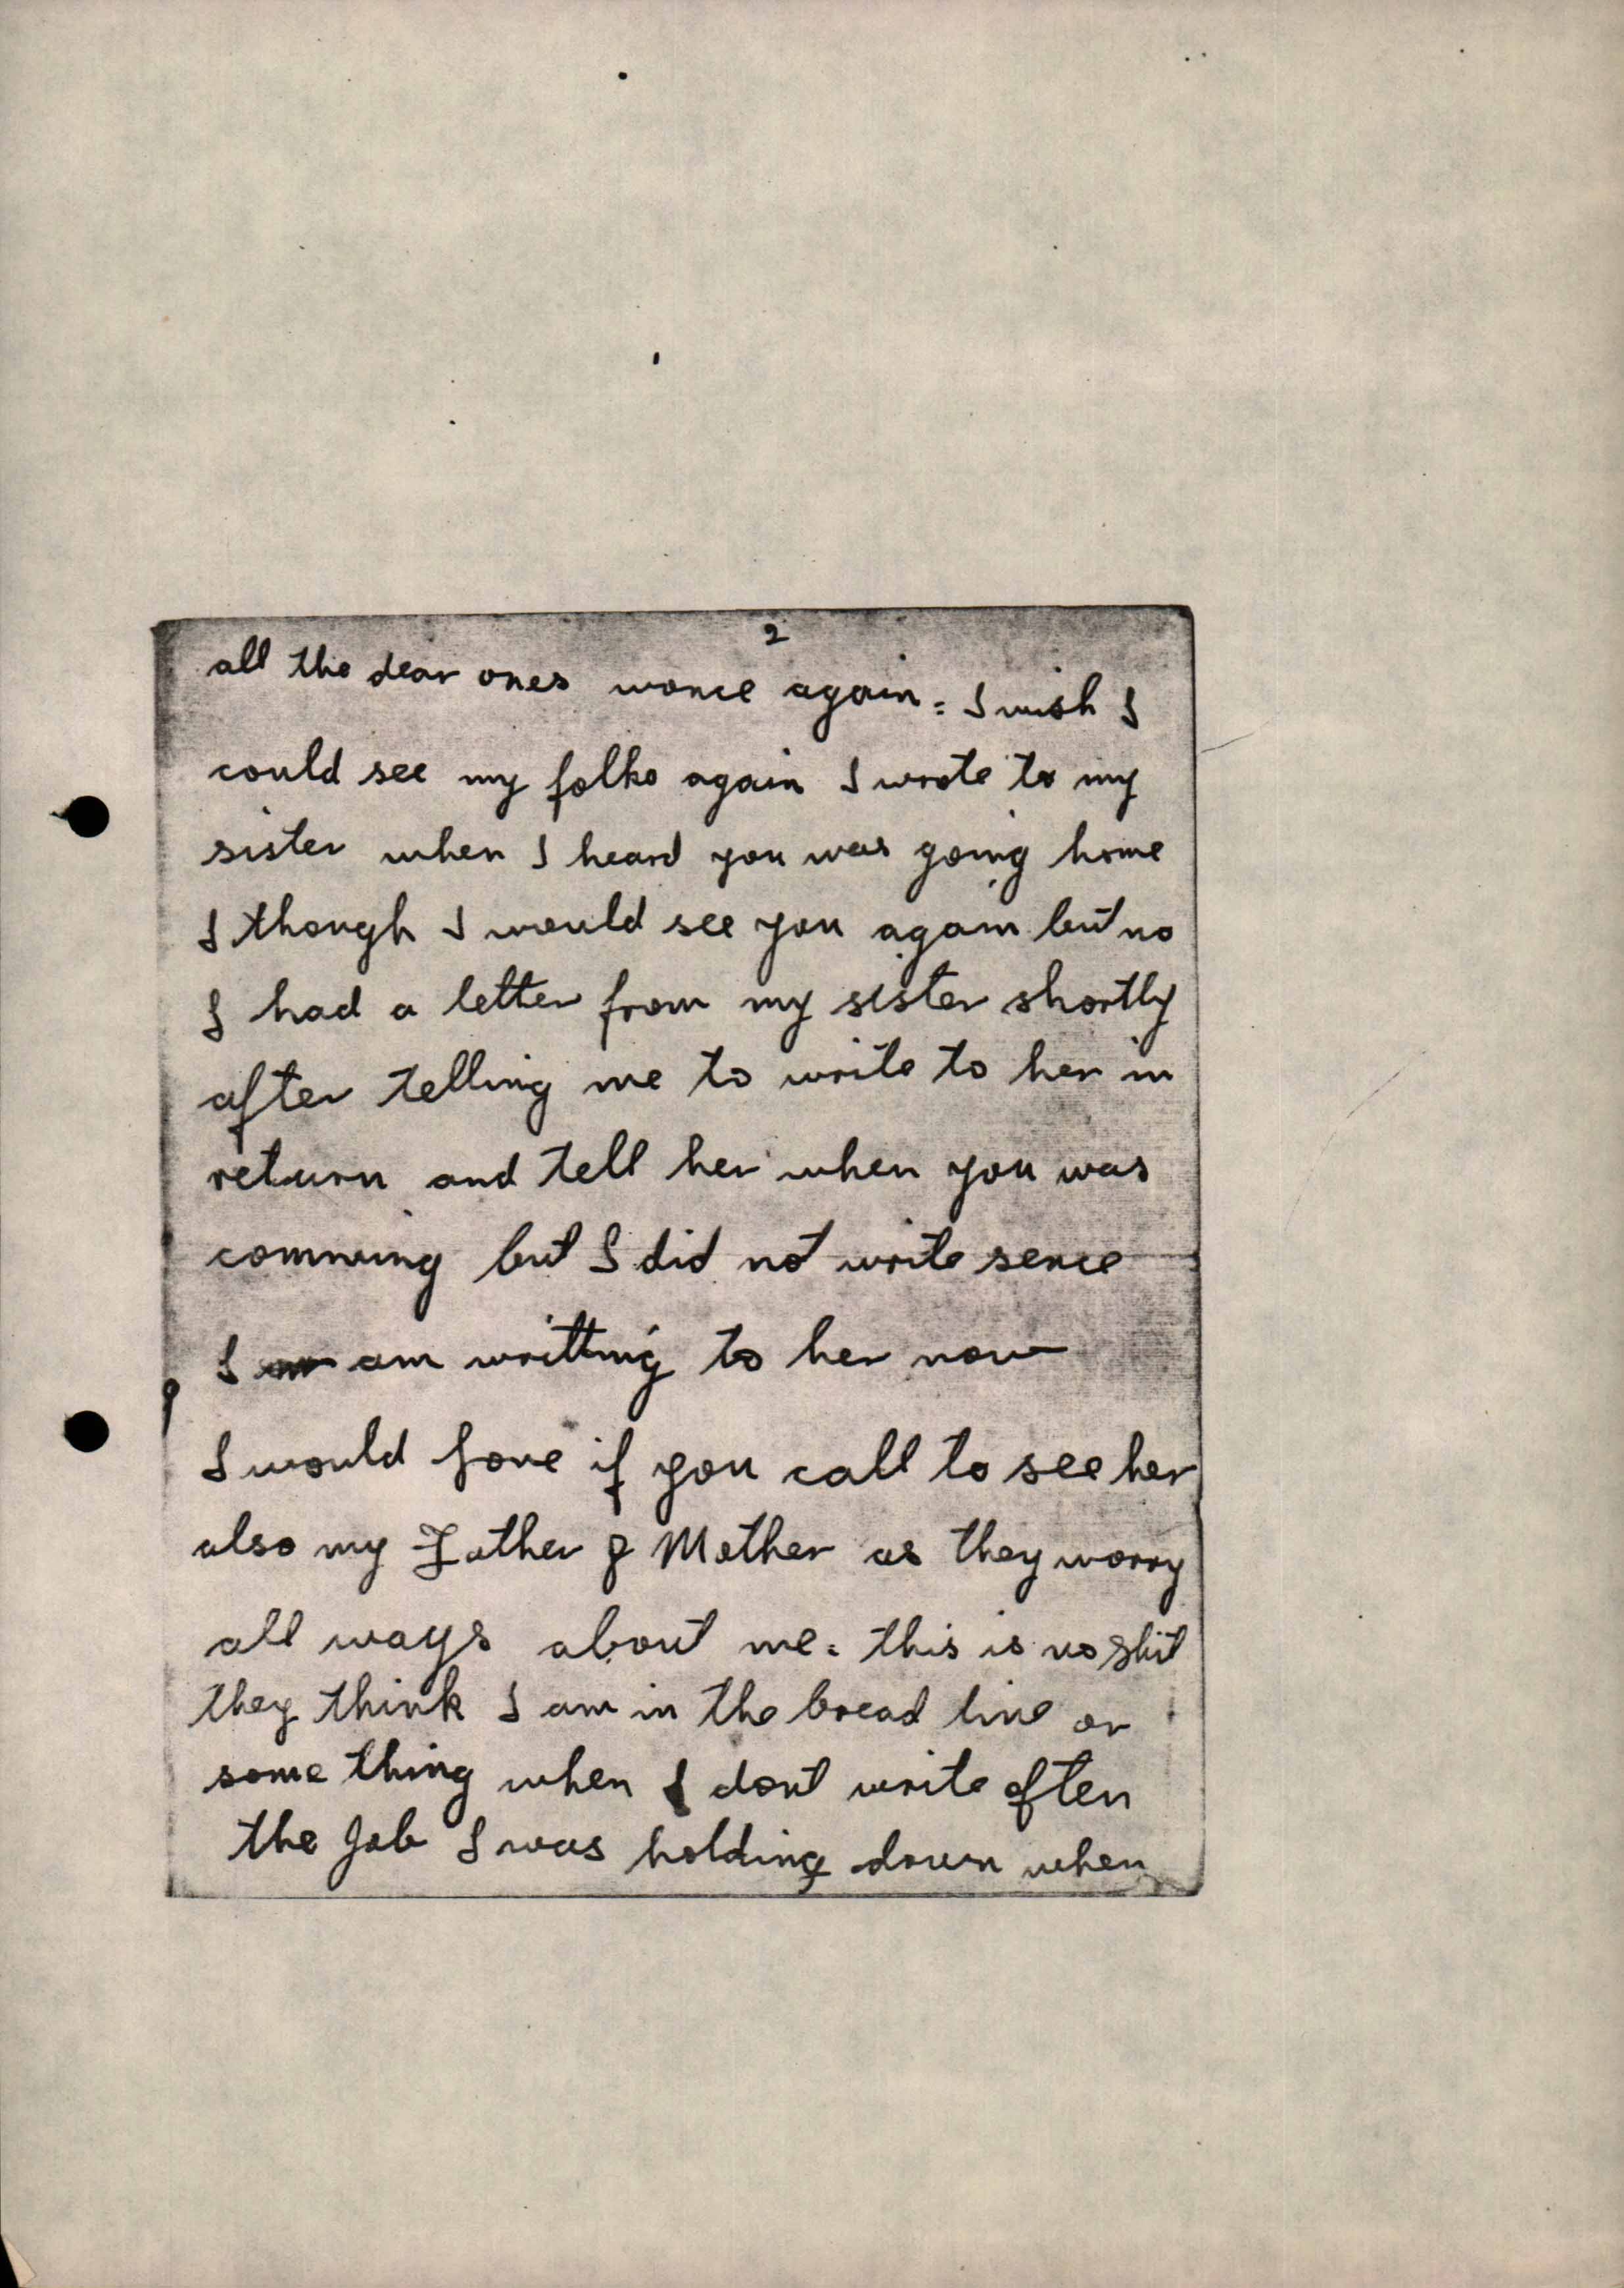 2
all the dear ones wonce again = I wish I
could see my folks again I wrote to my
sister when I heard you was going home
I though I would see you again but no
I had a letter from my sister shortly
after telling me to write to her in
return and tell her when you was
comming but I did not write sence
I am writting to her now
I would love if you call to see her
also my Father & Mother as they worry
all ways about me = this is no shit
they think I am in the bread line or
some thing when I dont write often
the Job I was holding down when